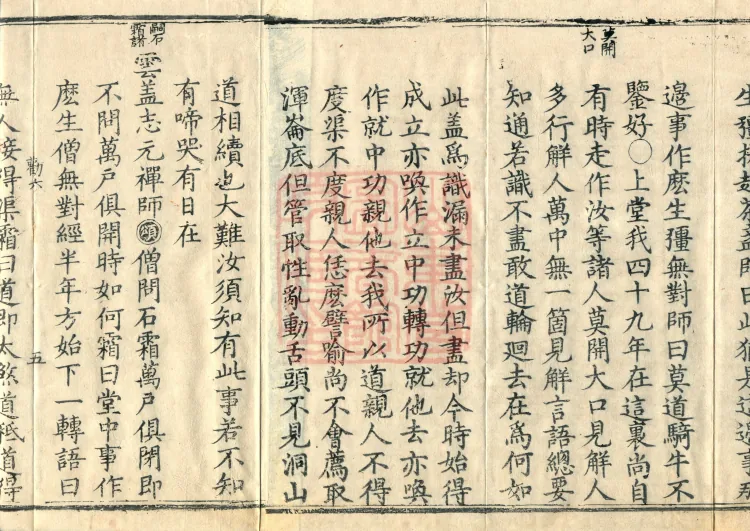 邊事作麽生彊無對師曰莫道騎牛不
鑒好○上堂我四十九年在這裏尚自
有時走作汝等諸人莫開大口見解人
多行解人萬中無一箇見解言語總要
知通若識不盡敢道輪廻去在爲何如
此盖爲識漏未盡汝但盡却今時始得
成立亦喚作立中功轉功就他去亦喚
作就中功親他去我所以道親人不得
度渠不度親人恁麽譬喻尚不會薦取
渾崙底但管取性亂動舌頭不見洞山
道相續也大難汝須知有此事若不知
有啼哭有日在
雲盖志元禪師 頌 僧問石霜萬戶俱閉即
不問萬戶俱開時如何霜曰堂中事作
麽生僧無對經半年方始下一轉語曰
無人接得渠霜曰道即太煞道秪道得
莫開
大口
嗣石
霜諸
勸六
五